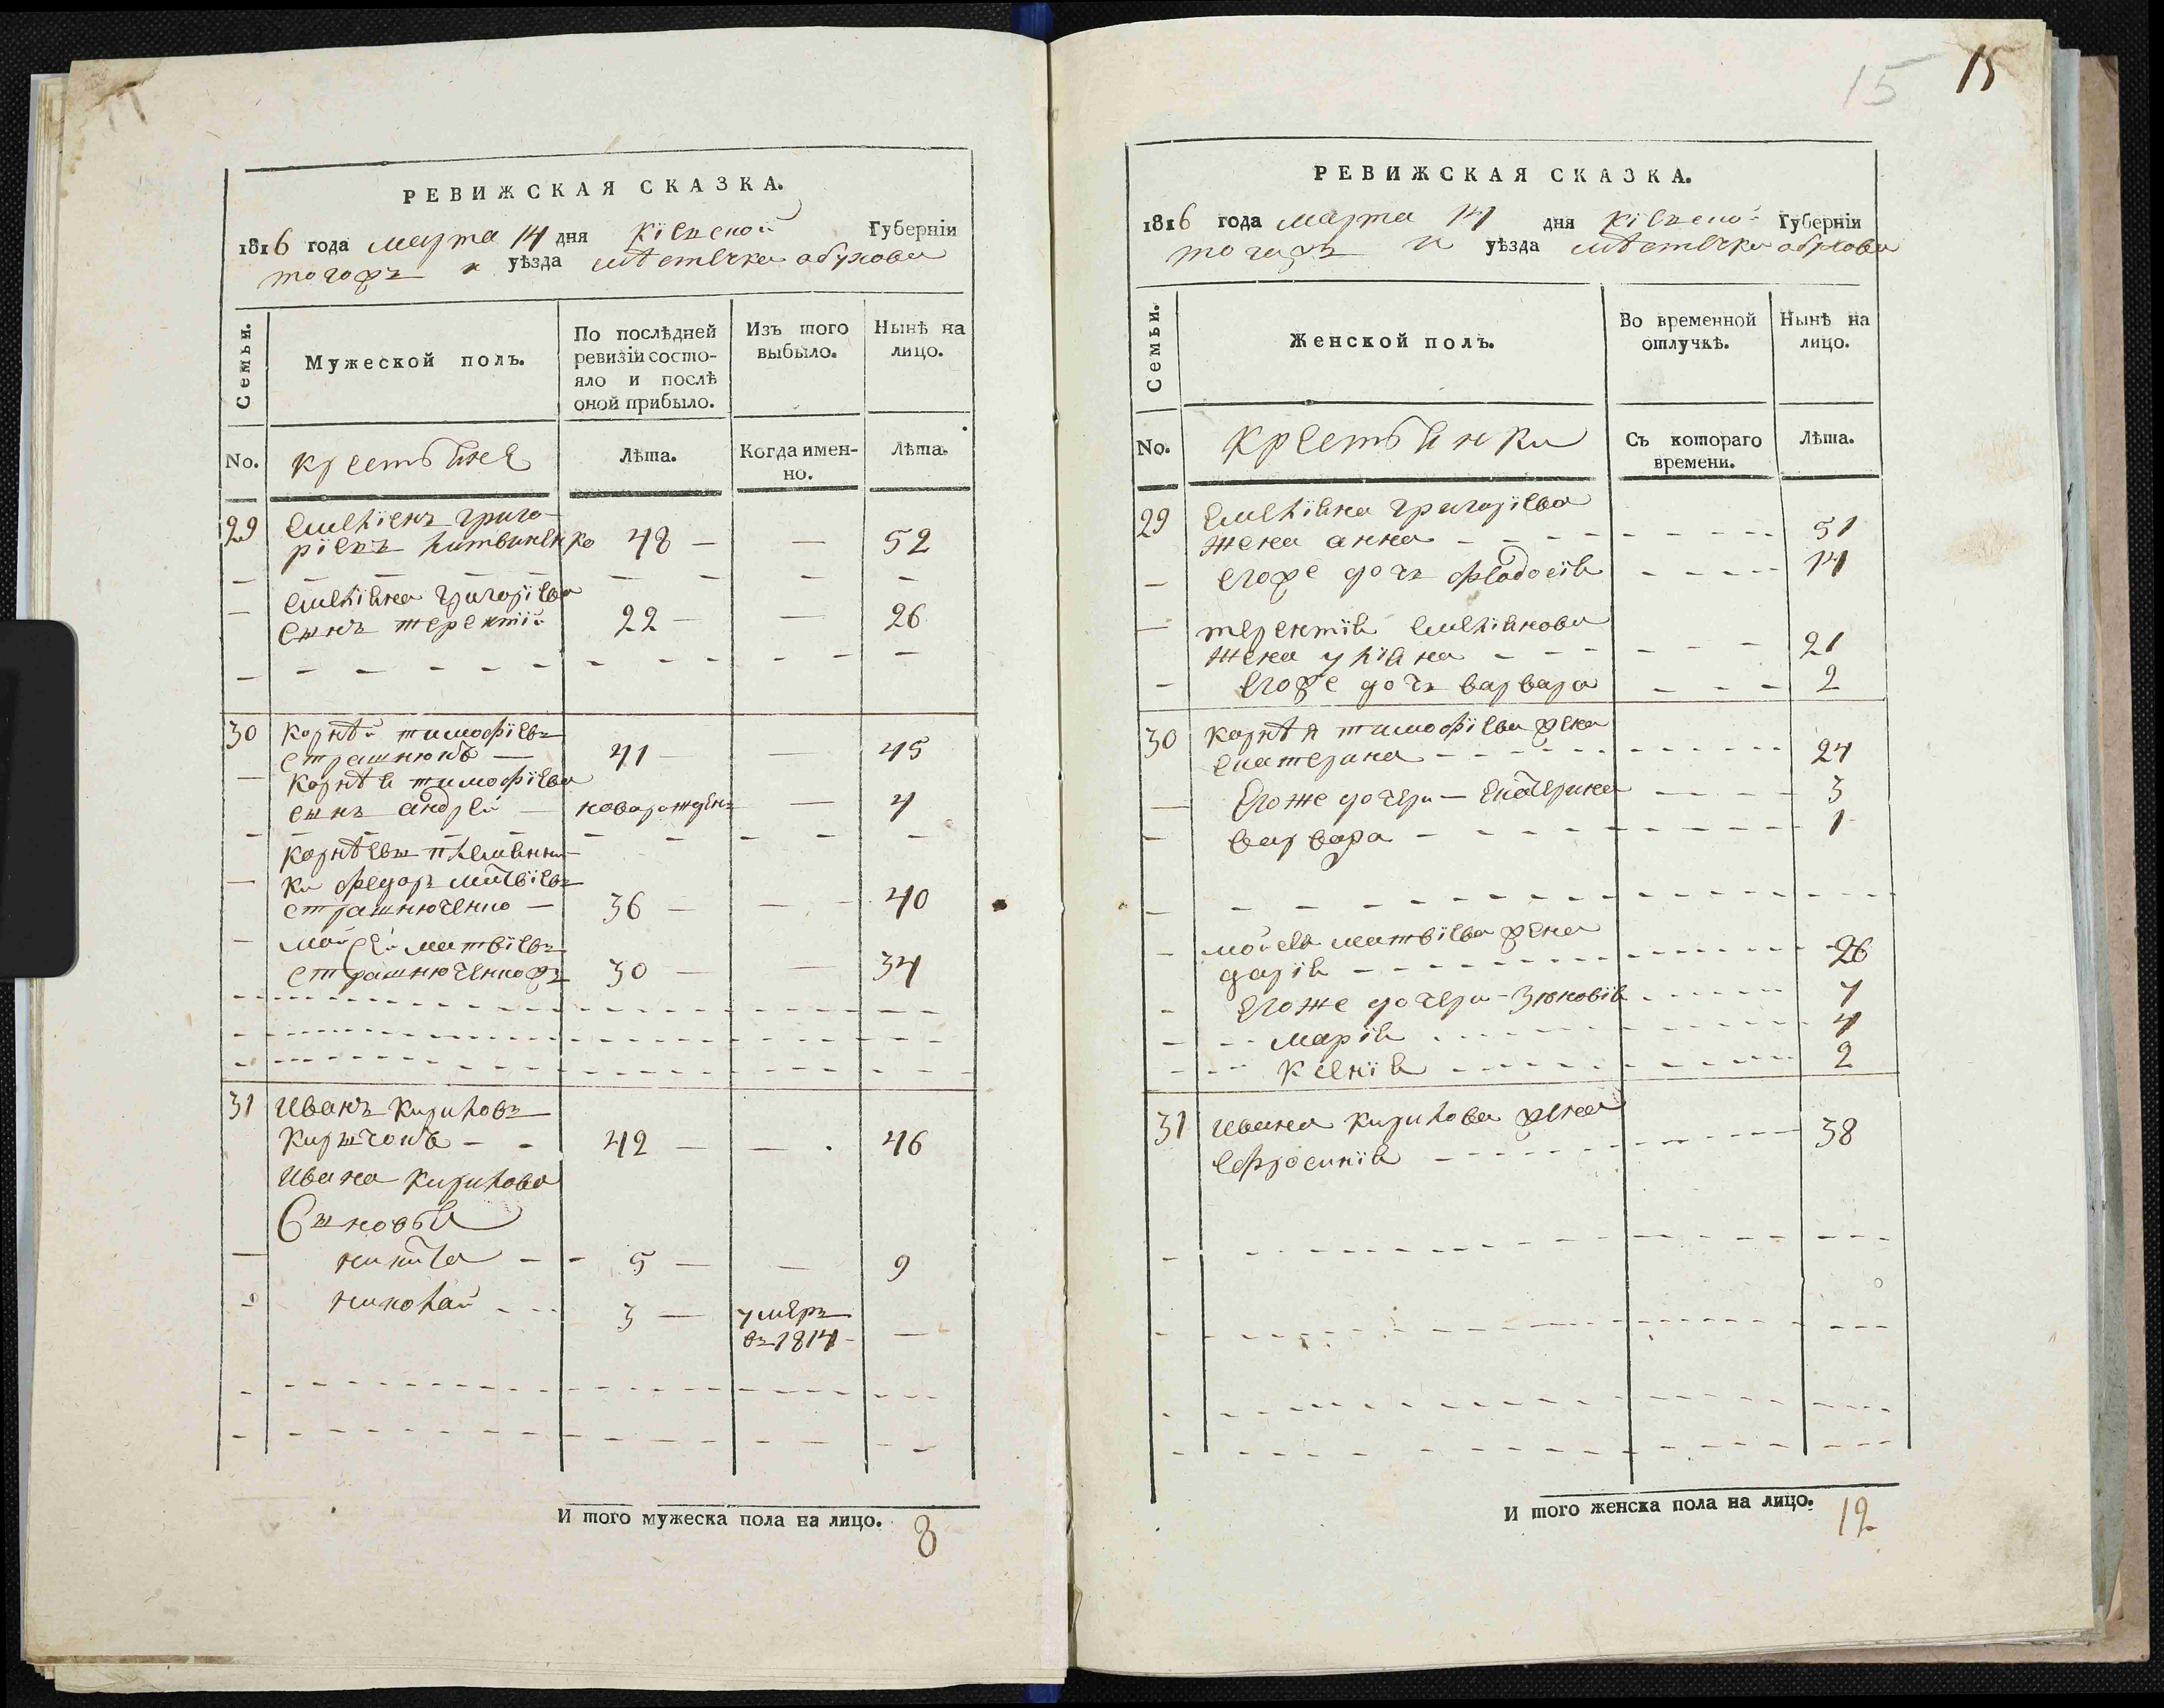 РЕВИЖСКАЯ СКАЗКА.
1816 года марта 14 дня Кіевской Губерніи
тогожъ уѣзда мѣстечка обухова
Семьи.
Мужеской полъ.
По послѣдней ревизіи состо-
яло и послѣ
оной прибыло.
Изъ того
выбыло.
Нынѣ на
лицо.
No.
крестьяне
Лѣта.
Когда имен-
но.
Лѣта.
29 Емелiянъ григо-
рiевъ литвиненко 48 — — 52
Емелiяна григорiева
сынъ терентiй 22 — — 26
30 Корнѣй тимофiевъ
страшнюкъ — 41 — — 45
Корнѣя тимофiева
сынъ андрей — новорожденъ — 4
Корнѣевы племянни-
ки федоръ матвiевъ
страшнюченко — 36 — — 40
мойсей матвiевъ
страшнюченкожъ 30 — — 34
31 Иванъ Кириловъ
Кирычокъ - - 42 — — 46
Ивана Кирилова
Сыновья
никита - - 5 — — 9
николай - - 3 — умеръ
въ 1814 - —
И того мужеска пола на лицо. 8
15 15
РЕВИЖСКАЯ СКАЗКА.
1816 года марта 14 дня Кіевской Губерніи
тогожъ уѣзда мѣстечка обухова
Семьи.
Женской полъ.
Во временной
отлучкѣ.
Нынѣ на
лицо.
No.
крестьянки
Съ котораго
времени.
Лѣта.
29 Емелiяна григорiева
жена анна 51
егоже дочъ феодосiя 14
терентiя Емелiянова
жена улiяна 21
егоже дочъ варвара 2
30 Корнѣя тимофiева жена
екатерина 24
Егоже дочери — Екатерина 3
варвара 1
мойсея матвiева жена
дарiя 26
Егоже дочери - Зѣновiя 7
марiя 4
Ксенiя 2
31 Ивана Кирилова жена
Ефросинiя 38
И того женска пола на лицо. 12